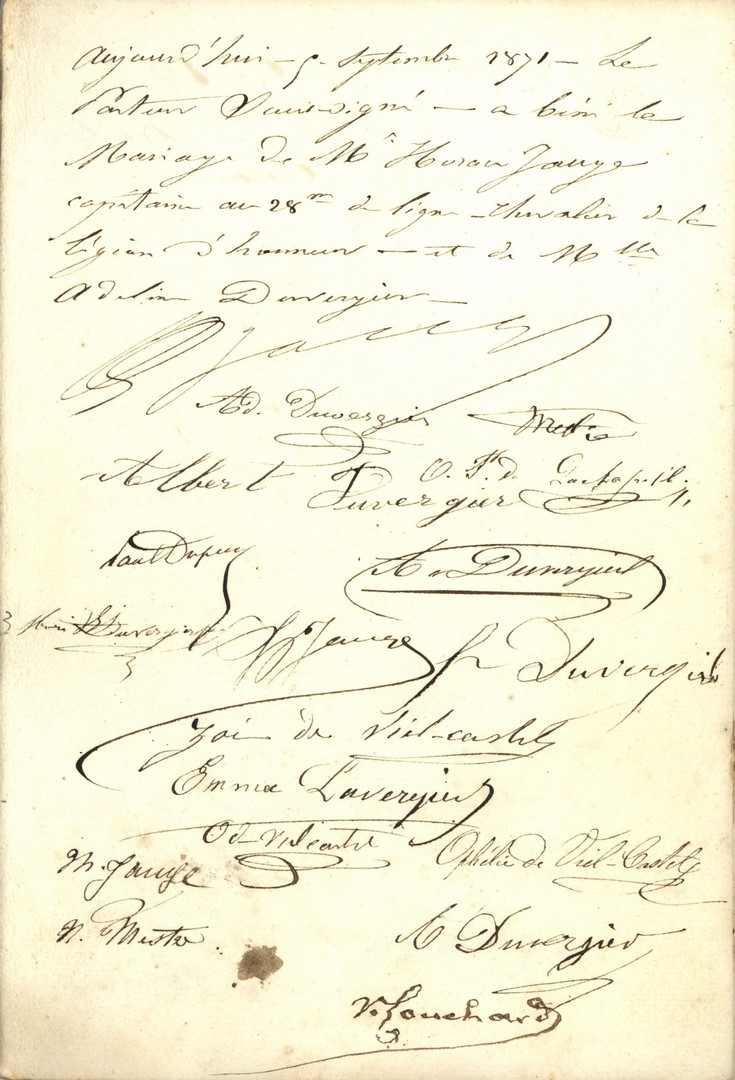 Aujourd'hui — 5 — Septembre 1871 — Le
Pasteur Sous-signé — a béni le
Mariage de Mr Horace Jauge
capitaine au 28me de ligne — chevalier de la
légion d'honneur — et de Mlle
Adeline Duvergier —
Jauge
Ad. Duvergier
Albert Duvergier
Paul Dupuy
A Duvergier
Henri Duvergier
Jauge
Duvergier
Zoé de Viel-castel
Emma Duvergier
O de Vielcastel
M. Jauge
Ophélie de Viel-Castel
N. Mestre
A Duvergier
V. Louchard